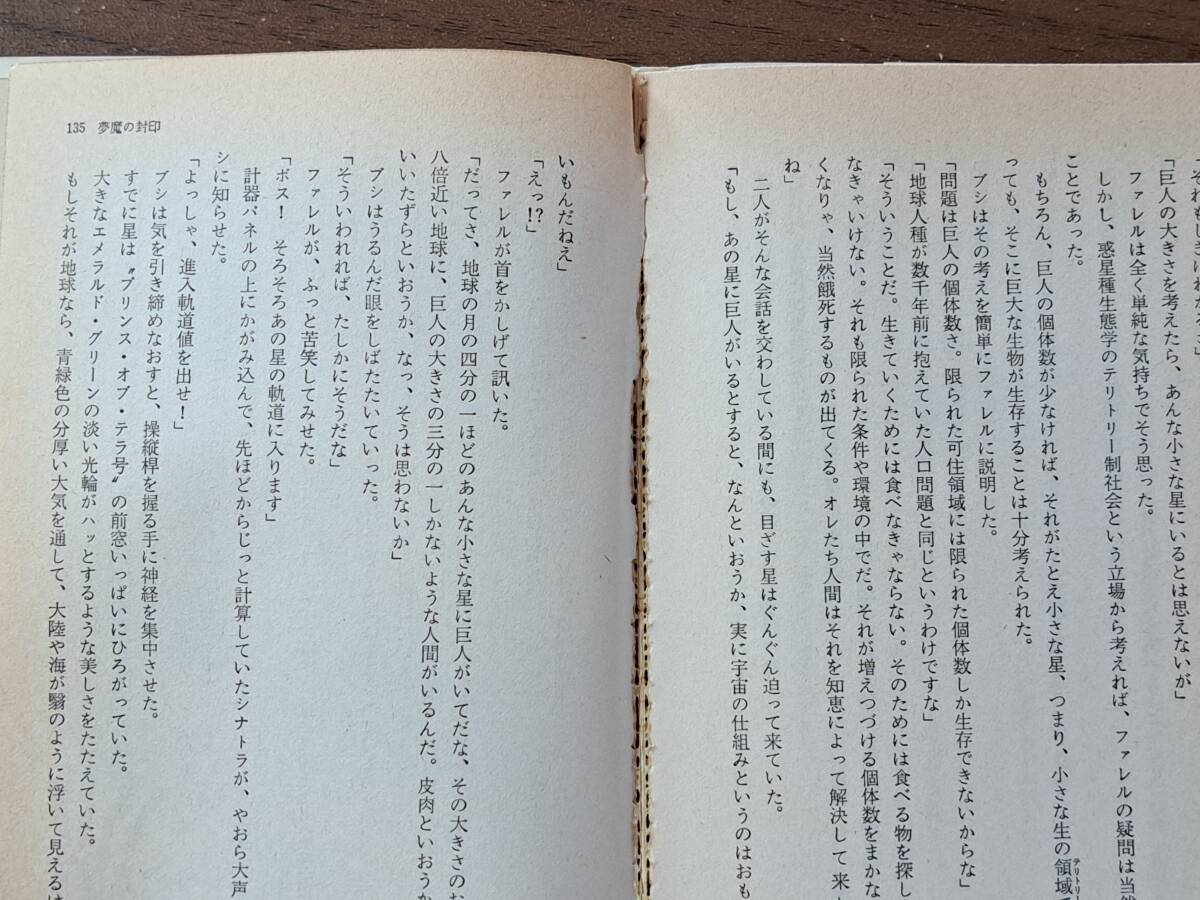 「巨人の大きさを考えたら、あんな小さな星にいるとは思えないが」
ファレルは全く単純な気持ちでそう思った。
しかし、惑星種生態学のテリトリー制社会という立場から考えれば、ファレルの疑問は当然
ことであった。
もちろん、巨人の個体数が少なければ、それがたとえ小さな星、つまり、小さな生の領域テリトリー
っても、そこに巨大な生物が生存することは十分考えられた。
ブシはその考えを簡単にファレルに説明した。
「問題は巨人の個体数さ。限られた可住領域には限られた個体数しか生存できないからな」
「地球人種が数千年前に抱えていた人口問題と同じというわけですな」
「そういうことだ。生きていくためには食べなきゃならない。そのためには食べる物を探し
なきゃいけない。それも限られた条件や環境の中でだ。それが増えつづける個体数をまかな
くなりゃ、当然餓死するものが出てくる。オレたち人間はそれを知恵によって解決して来
ね」
二人がそんな会話を交わしている間にも、目ざす星はぐんぐん迫って来ていた。
「もし、あの星に巨人がいるとすると、なんといおうか、実に宇宙の仕組みというのはおも
135 夢魔の封印
いもんだねえ」
「えっ!?」
ファレルが首をかしげて訊いた。
「だってさ、地球の月の四分の一ほどのあんな小さな星に巨人がいてだな、その大きさの
八倍近い地球に、巨人の大きさの三分の一しかないような人間がいるんだ。皮肉といおうか
いいたずらといおうか、なっ、そうは思わないか」
ブシはうるんだ眼をしばたたいていった。
「そういわれれば、たしかにそうだな」
ファレルが、ふっと苦笑してみせた。
「ボス！　そろそろあの星の軌道に入ります」
計器パネルの上にかがみ込んで、先ほどからじっと計算していたシナトラが、やおら大声
シに知らせた。
「よっしゃ、進入軌道値を出せ！」
ブシは気を引き締めなおすと、操縦桿を握る手に神経を集中させた。
すでに星は〝プリンス・オブ・テラ号〟の前窓いっぱいにひろがっていた。
大きなエメラルド・グリーンの淡い光輪がハッとするような美しさをたたえていた。
もしそれが地球なら、青緑色の分厚い大気を通して、大陸や海が翳のように浮いて見える